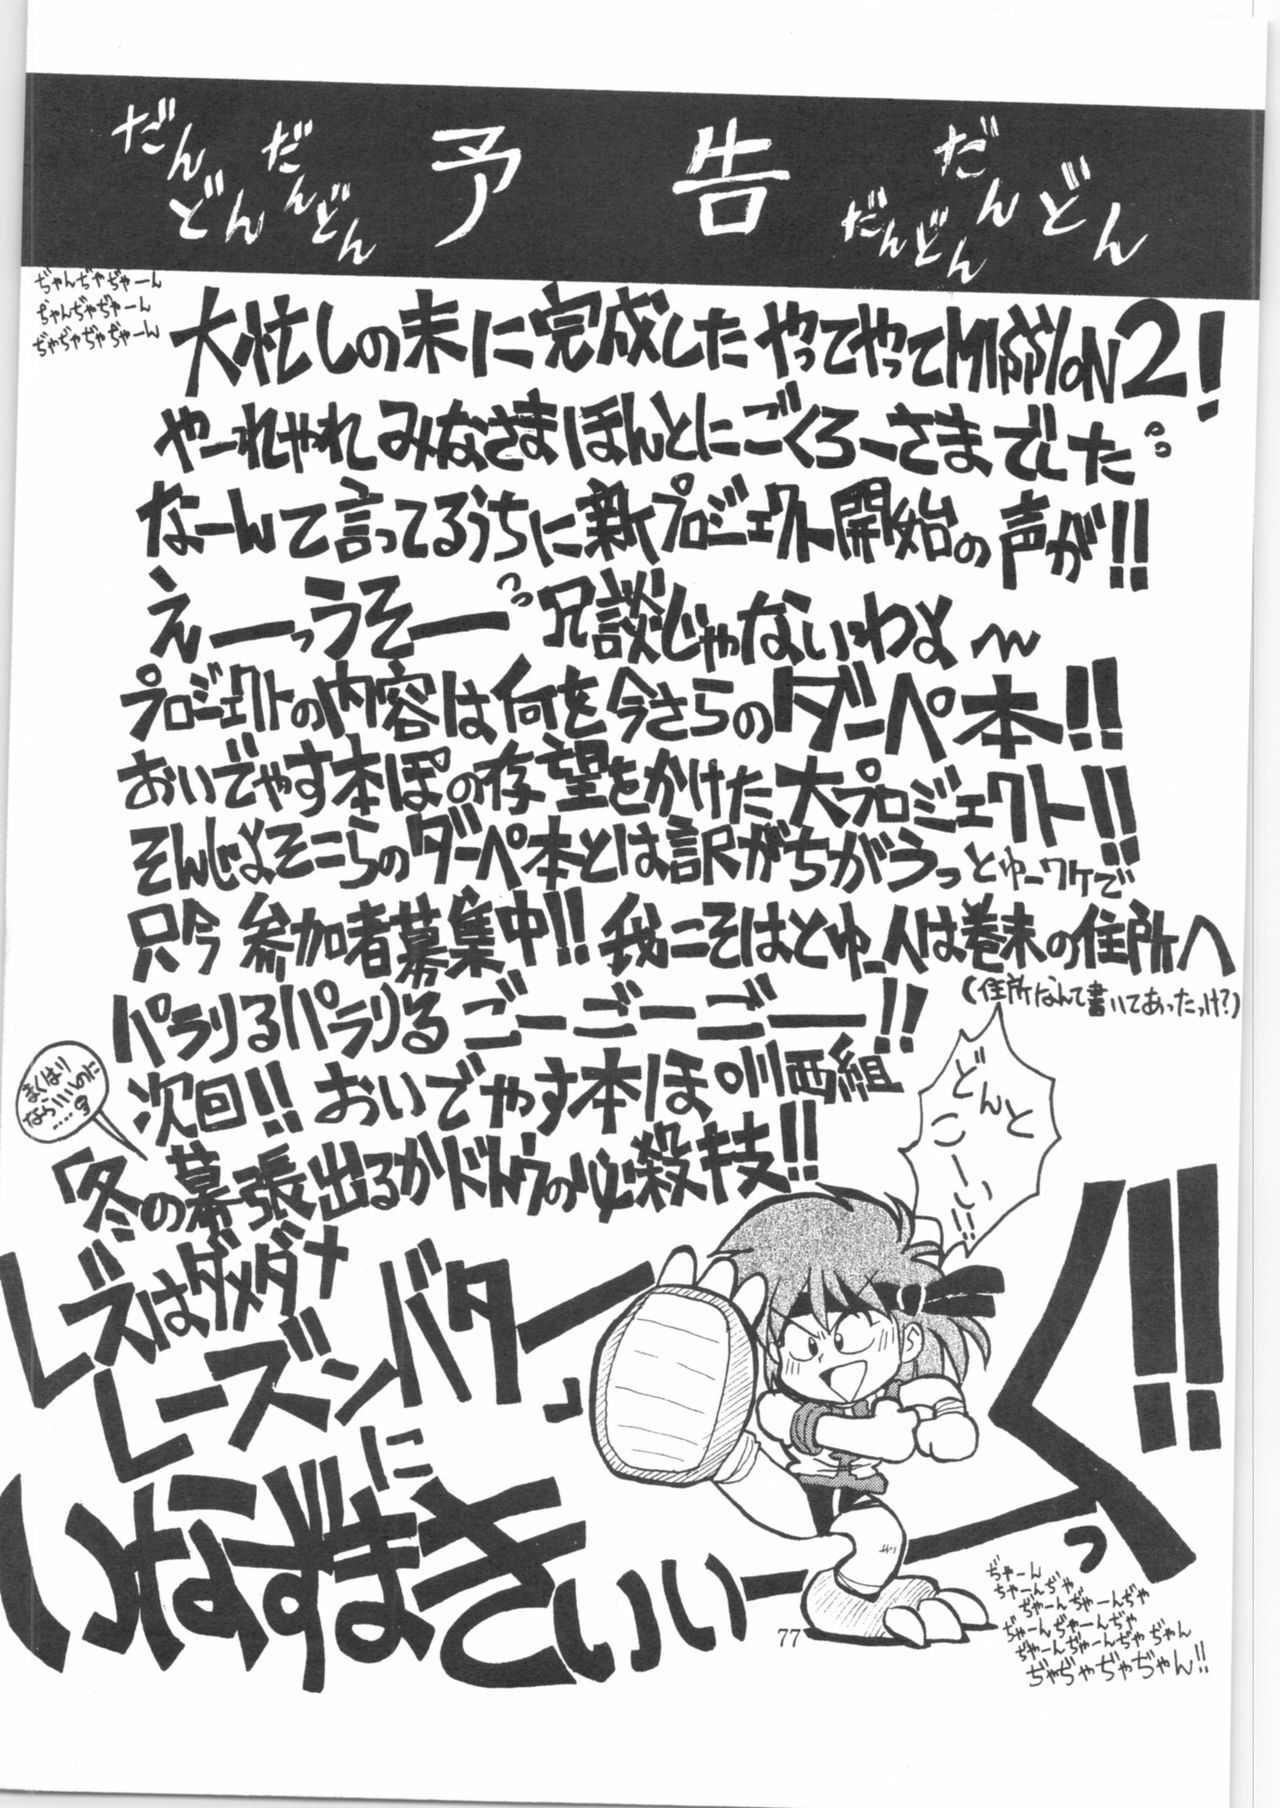 だんどん だんだんどん 予告 だんどん だんどん
ぢゃんぢゃぢゃーん
ぢゃんぢゃぢゃーん
ぢゃぢゃぢゃぢゃーん
大忙しの末に完成したやってやってMISSION2!
やーれやれみなさまほんとにごくろーさまでした
なーんて言ってるうちに新プロジェクト開始の声が!!
えーーっうそーー冗談じゃないわよ〜
プロジェクトの内容は何を今さらのダーペ本!!
おいでやす本ぽの存望をかけた大プロジェクト!!
そんじょそこらのダーペ本とは訳がちがうっとゆーワケで
只今参加者募集中!!我こそはとゆー人は巻末の住所へ
(住所なんて書いてあったっけ?)
パラりるパラりるごーごーごーー!!
次回!!おいでやす本ほ川西組
まくはり
ならいいのに
「冬の幕張出るかドトウの必殺技!!
レズはダメダメ
レーズンバターっ
に
いなずまきぃぃーっく!!
どんと
こーい!!
77
ぢゃーん
ちゃーんぢゃ
ぢゃーんぢゃーんぢゃ
ぢゃーんぢゃーんぢゃ
ぢゃーんぢゃーんぢゃぢゃん
ぢゃぢゃぢゃぢゃん!!